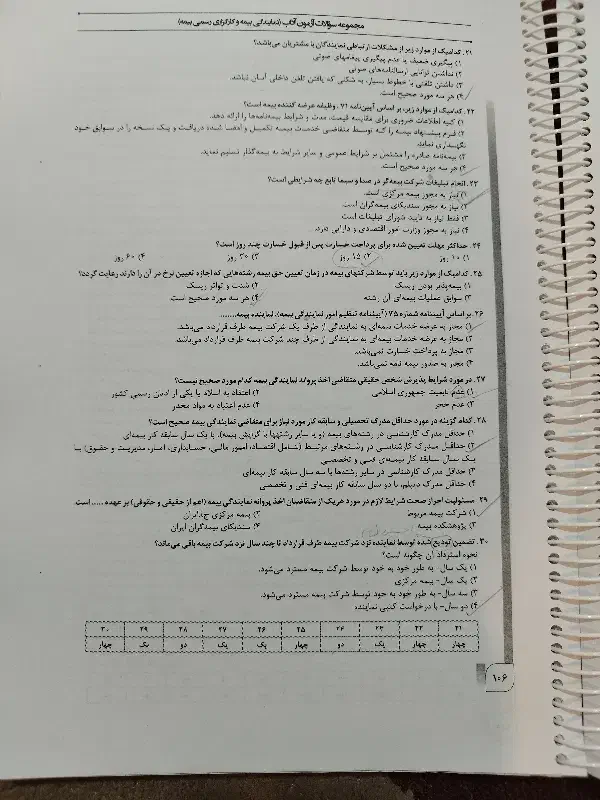 مجموعه سوالات آزمون آداب (نمایندگی بیمه و کارگزاری رسمی بیمه)
۲۱. کدامیک از موارد زیر از مشکلات ارتباطی نمایندگان با مشتریان می‌باشد؟
۱) پیگیری ضعیف یا عدم پیگیری پیغامهای صوتی
۲) نداشتن توانایی ارسال نامه‌های صوتی
۳) داشتن تلفنی با خطوط بسیار، به شکلی که یافتن تلفن داخلی آسان نباشد.
۴) هر سه مورد صحیح است.
۲۲. کدامیک از موارد زیر، بر اساس آیین‌نامه ۷۱، وظیفه عرضه کننده بیمه است؟
۱) کلیه اطلاعات ضروری برای مقایسه قیمت، مدت و شرایط بیمه‌نامه‌ها را ارائه دهد.
۲) فرم پیشنهاد بیمه را که توسط متقاضی خدمات بیمه تکمیل و امضا شده دریافت و یک نسخه را در سوابق خود
نگهداری نماید.
۳) بیمه‌نامه صادره را مشتمل بر شرایط عمومی و سایر شرایط به بیمه‌گذار تسلیم نماید.
۴) هر سه مورد صحیح است.
۲۳. انجام تبلیغات شرکت بیمه‌گر در صدا و سیما تابع چه شرایطی است؟
۱) نیاز به مجوز بیمه مرکزی است.
۲) نیاز به مجوز سندیکای بیمه‌گران است
۳) فقط نیاز به تایید شورای تبلیغات است
۴) نیاز به مجوز وزارت امور اقتصادی و دارایی دارد.
۲۴. حداکثر مهلت تعیین شده برای پرداخت خسارت پس از قبول خسارت چند روز است؟
۱) ۱۰ روز ۲) ۱۵ روز ۳) ۳۰ روز ۴) ۶۰ روز
۲۵. کدامیک از موارد زیر باید توسط شرکتهای بیمه در زمان تعیین حق بیمه رشته‌هایی که اجازه تعیین نرخ در آن را دارند رعایت گردد؟
۱) بیمه‌پذیر بودن ریسک ۲) شدت و تواتر ریسک
۳) سوابق عملیات بیمه‌ای آن رشته ۴) هر سه مورد صحیح است.
۲۶. بر اساس آیین‌نامه شماره ۷۵ (آیین‌نامه تنظیم امور نمایندگی بیمه)، نماینده بیمه.......
۱) مجاز به عرضه خدمات بیمه‌ای به نمایندگی از طرف یک شرکت بیمه طرف قرارداد می‌باشد.
۲) مجاز به عرضه خدمات بیمه‌ای به نمایندگی از طرف چند شرکت بیمه طرف قرارداد می‌باشد.
۳) مجاز به پرداخت خسارت نمی‌باشد.
۴) مجاز به صدور بیمه نامه نمی‌باشد.
۲۷. در مورد شرایط پذیرش شخص حقیقی متقاضی اخذ پروانه نمایندگی بیمه کدام مورد صحیح نیست؟
۱) عدم تابعیت جمهوری اسلامی ۲) اعتقاد به اسلام یا یکی از ادیان رسمی کشور
۳) عدم حجر ۴) عدم اعتیاد به مواد مخدر
۲۸. کدام گزینه در مورد حداقل مدرک تحصیلی و سابقه کار مورد نیاز برای متقاضی نمایندگی بیمه صحیح است؟
۱) حداقل مدرک کارشناسی در رشته‌های بیمه (و یا سایر رشته‌ها با گرایش بیمه)، با یک سال سابقه کار بیمه‌ای
۲) حداقل مدرک کارشناسی در رشته‌های مرتبط (شامل اقتصاد، امور مالی، حسابداری، آمار، مدیریت و حقوق) با
یک سال سابقه کار بیمه‌ی فنی و تخصصی
۳) حداقل مدرک کارشناسی در سایر رشته‌ها با سه سال سابقه کار بیمه‌ای
۴) حداقل مدرک دیپلم، با دو سال سابقه کار بیمه‌ای فنی و تخصصی
۲۹. مسئولیت احراز صحت شرایط لازم در مورد هریک از متقاضیان اخذ پروانه نمایندگی بیمه (اعم از حقیقی و حقوقی) بر عهده ..... است.
۱) شرکت بیمه مربوط ۲) بیمه مرکزی ج.ا.ایران
۳) پژوهشکده بیمه ۴) سندیکای بیمه‌گران ایران
۳۰. تضمین تودیع شده توسط نماینده نزد شرکت بیمه طرف قرارداد تا چند سال نزد شرکت بیمه باقی می‌ماند؟
نحوه استرداد آن چگونه است؟
۱) یک سال- به طور خود به خود توسط شرکت بیمه مسترد می‌شود.
۲) یک سال- بیمه مرکزی
۳) سه سال- به طور خود به خود توسط شرکت بیمه مسترد می‌شود.
۴) دو سال- با درخواست کتبی نماینده
۲۱ ۲۲ ۲۳ ۲۴ ۲۵ ۲۶ ۲۷ ۲۸ ۲۹ ۳۰
چهار چهار یک دو چهار یک یک دو یک چهار
۱۰۶